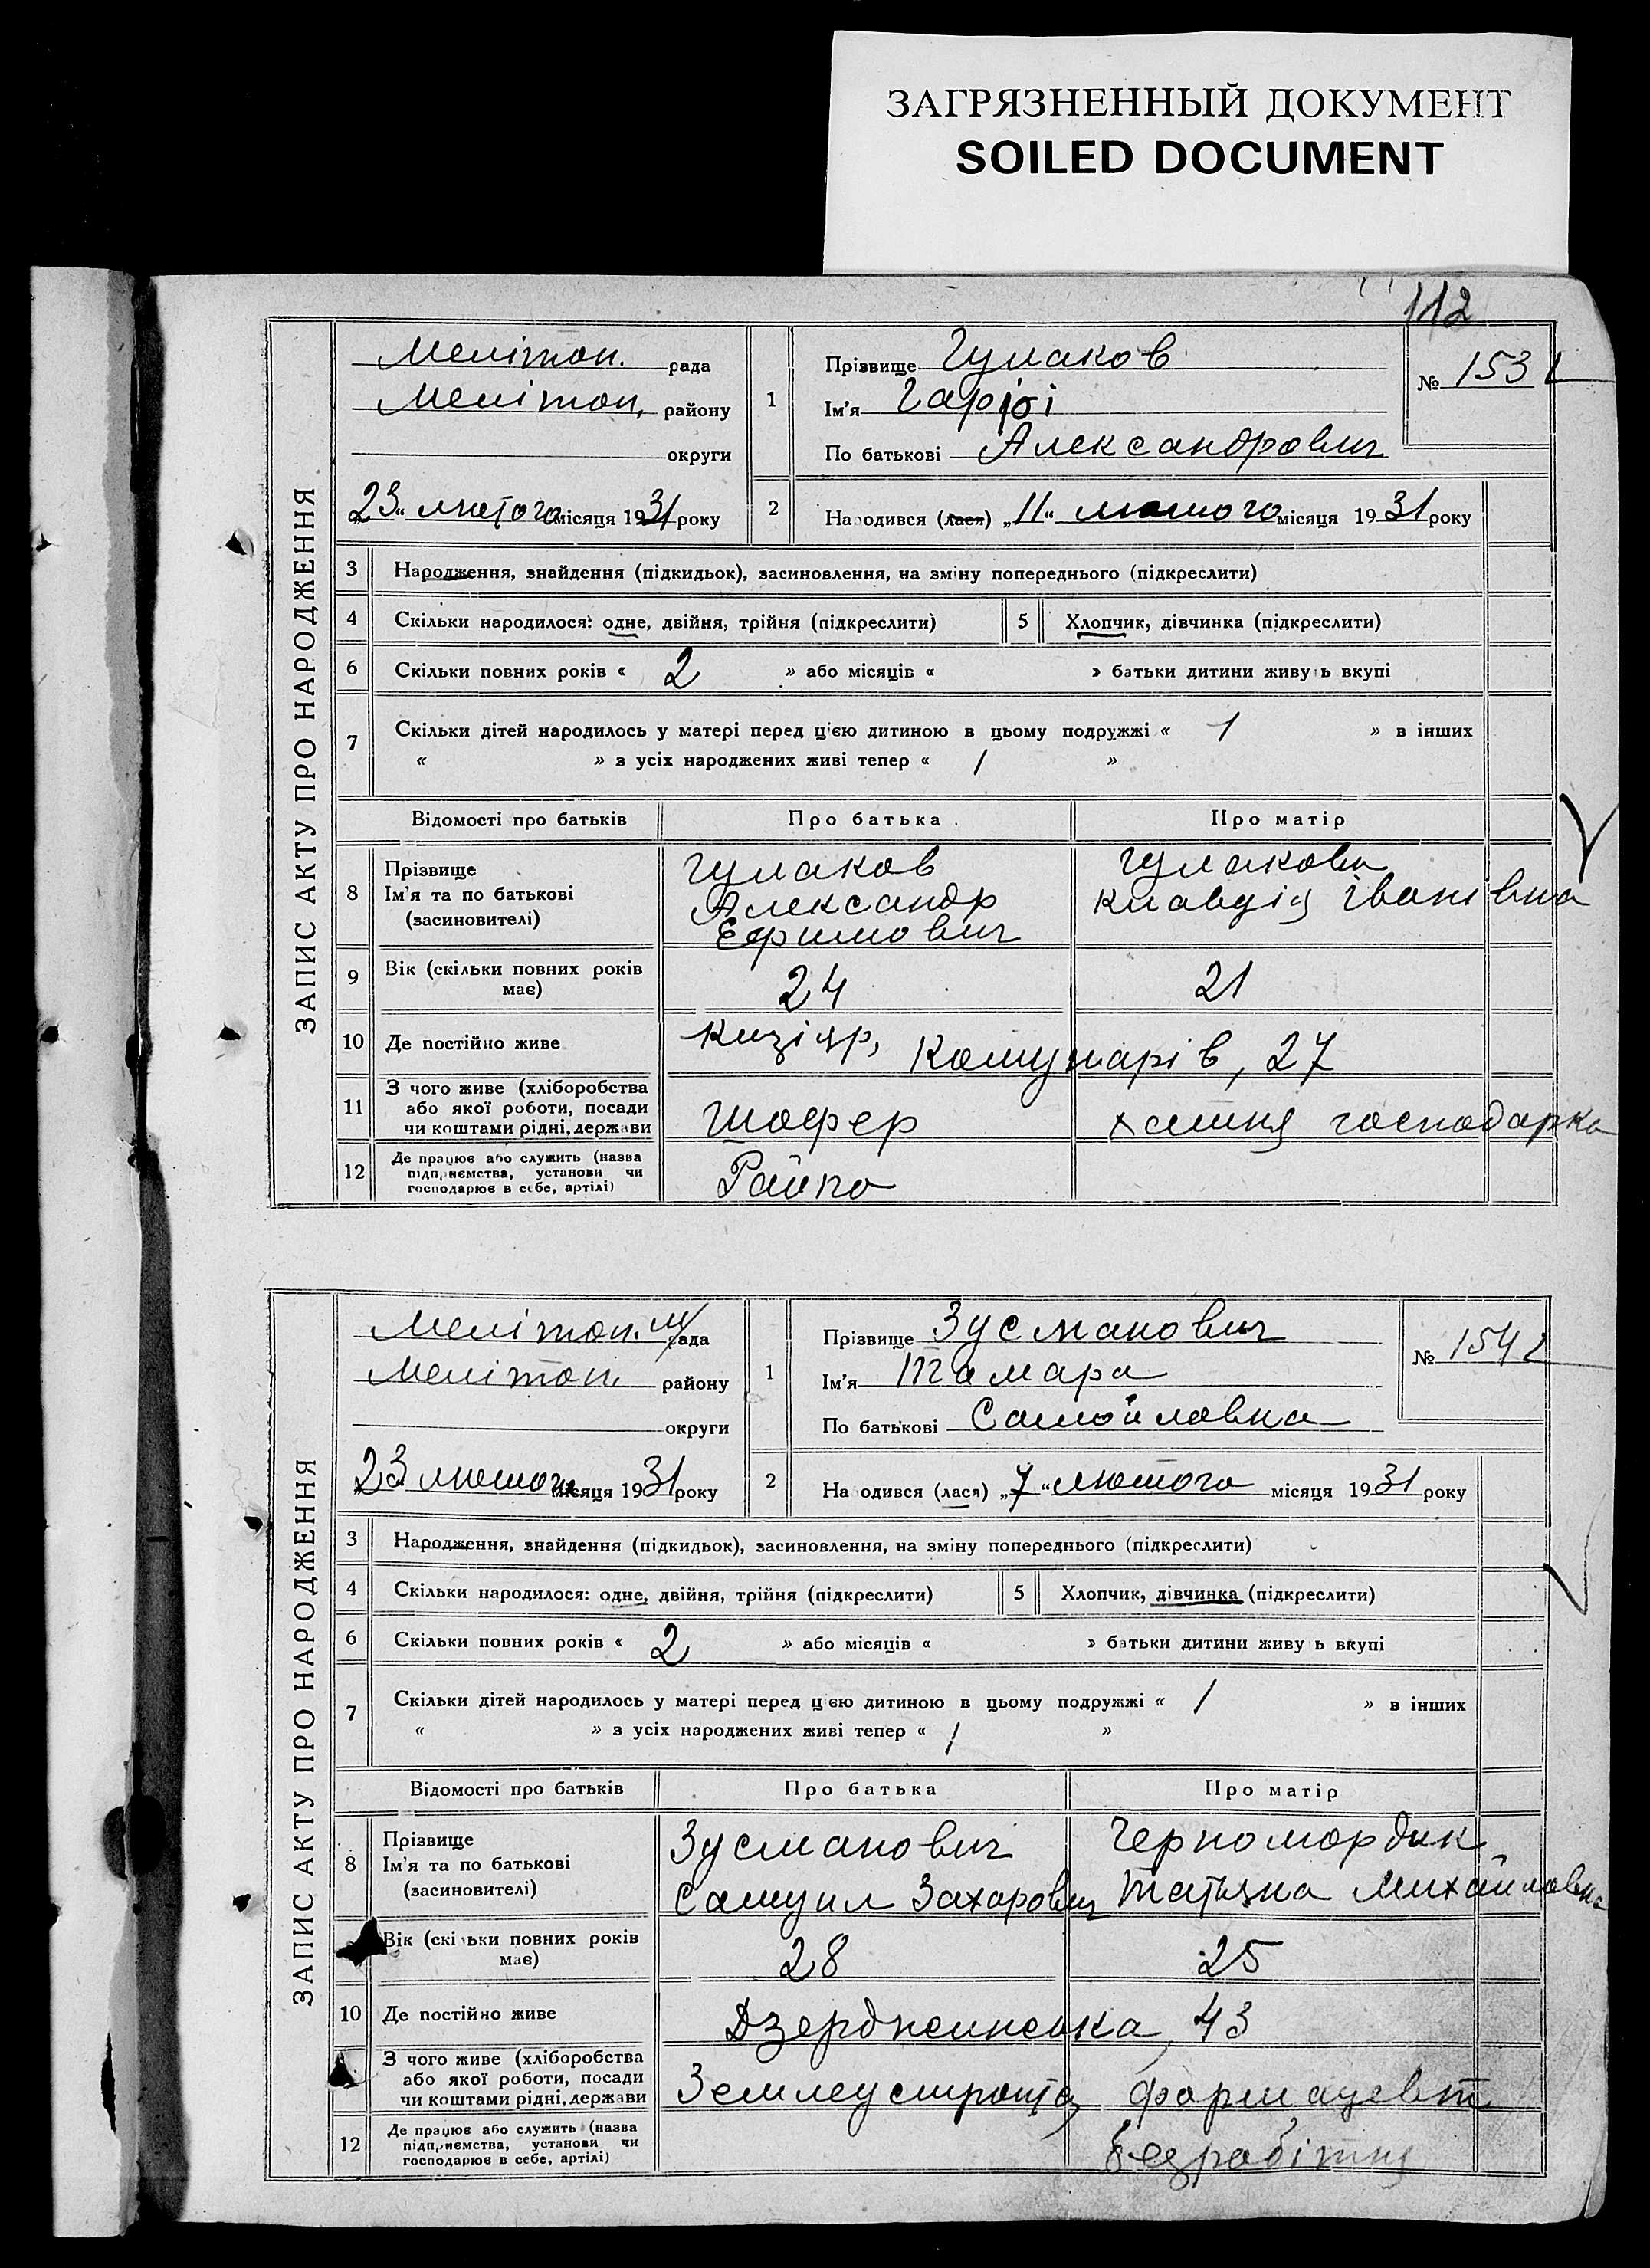 ЗАГРЯЗНЕННЫЙ ДОКУМЕНТ
SOILED DOCUMENT
112
ЗАПИС АКТУ ПРО НАРОДЖЕННЯ
Мелітоп. рада
Мелітоп. району
округи
„23“ лютого місяця 1931 року
1
Прізвище Гулаков
Ім'я Гаррі
По батькові Александрович
№ 153
2
Народився (лася) „11“ лютого місяця 1931 року
3 Народження, знайдення (підкидьок), засиновлення, на зміну попереднього (підкреслити)
4 Скільки народилося: одне, двійня, трійня (підкреслити) 5 Хлопчик, дівчинка (підкреслити)
6 Скільки повних років « 2 » або місяців « » батьки дитини живуть вкупі
7 Скільки дітей народилось у матері перед цією дитиною в цьому подружжі « 1 » в інших
« » з усіх народжених живі тепер « 1 »
Відомості про батьків Про батька Про матір
8 Прізвище
Ім'я та по батькові
(засиновителі)
Гулаков
Александр
Ефимович
Гулакова
Клавдія Іванівна
9 Вік (скільки повних років
має)
24 21
10 Де постійно живе Кизіяр, Комунарів, 27
11 З чого живе (хліборобства
або якої роботи, посади
чи коштами рідні, держави
Шофер хатня господарка
12 Де працює або служить (назва
підприємства, установи чи
господарює в себе, артілі)
Райпо
ЗАПИС АКТУ ПРО НАРОДЖЕННЯ
Мелітоп. м/рада
Мелітоп. району
округи
„23 лютого місяця 1931 року
1
Прізвище Зусманович
Ім'я Тамара
По батькові Самойловна
№ 154
2
Народився (лася) „7“ лютого місяця 1931 року
3 Народження, знайдення (підкидьок), засиновлення, на зміну попереднього (підкреслити)
4 Скільки народилося: одне, двійня, трійня (підкреслити) 5 Хлопчик, дівчинка (підкреслити)
6 Скільки повних років « 2 » або місяців « » батьки дитини живуть вкупі
7 Скільки дітей народилось у матері перед цією дитиною в цьому подружжі « 1 » в інших
« » з усіх народжених живі тепер « 1 »
Відомості про батьків Про батька Про матір
8 Прізвище
Ім'я та по батькові
(засиновителі)
Зусманович
Самуил Захарович
Черномордик
Татьяна Михайловна
Вік (скільки повних років
має)
28 25
10 Де постійно живе Дзерджинська, 43
З чого живе (хліборобства
або якої роботи, посади
чи коштами рідні, держави
фармацевт
12 Де працює або служить (назва
підприємства, установи чи
господарює в себе, артілі)
безробітня